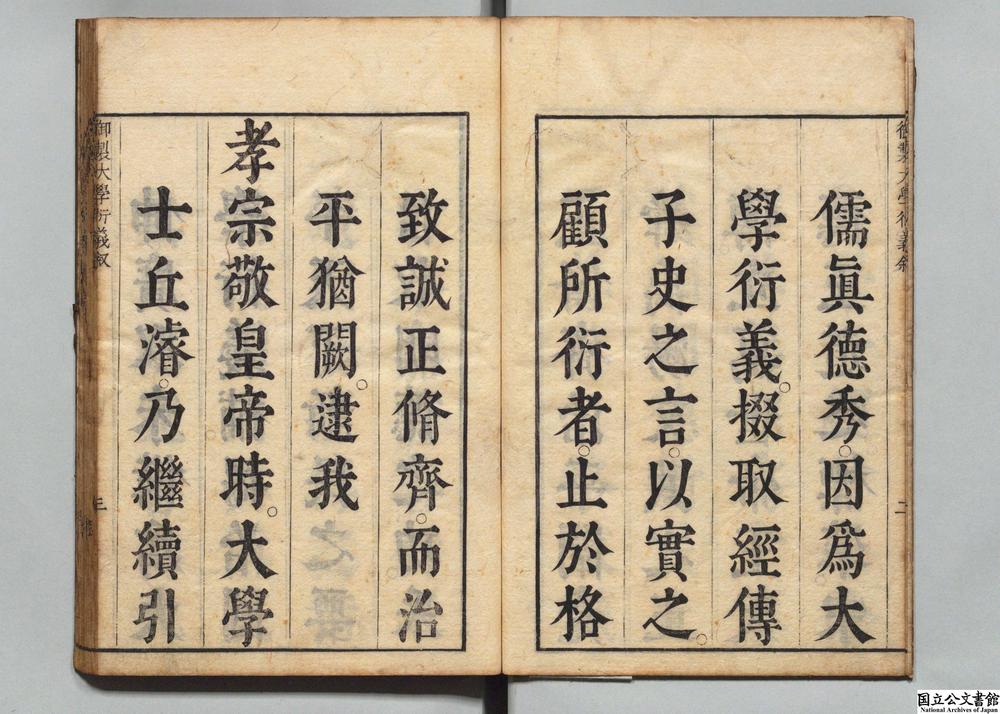 儒眞德秀。因爲大
學衍義。掇取經傳
子史之言。以實之。
顧所衍者。止於格
致誠正脩齊。而治
平猶闕。逮我
孝宗敬皇帝時。大學
士丘濬。乃繼續引
御製大學衍義敘
二
御製大學衍義叙
三
国立公文書館
National Archives of Japan